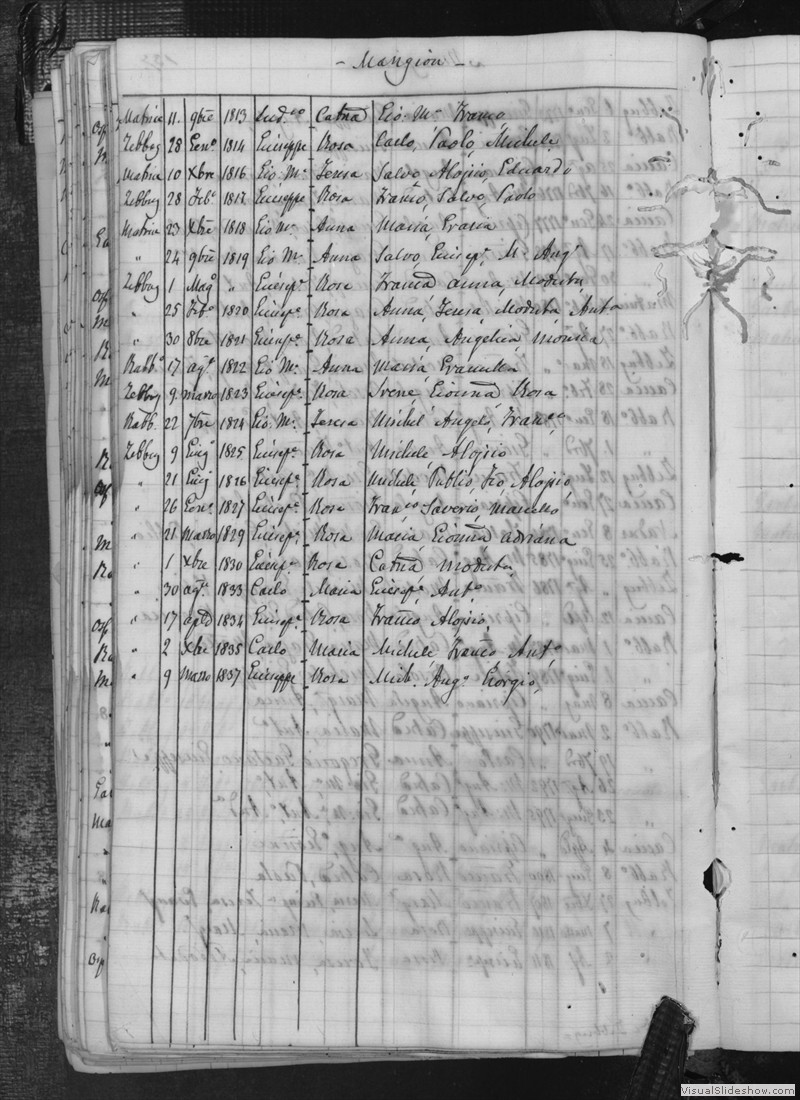 - Mangion -
Matrice 11. 9bre 1813 Lud.co Catna Gio. Ma. Franco,
Zebbug 28 Gen.o 1814 Giuseppe Rosa Carlo, Paolo, Michele
Matrice 10 Xbre 1816 Gio M. Teresa Salvo, Aloisio, Eduardo
Zebbug 28 Feb.o 1817 Giuseppe Rosa Franco, Salvo, Paolo
Matrice 23 Xbre 1818 Gio M. Anna Maria, Grazia
" 24 9bre 1819 Gio M. Anna Salvo, Giusep.e M. Ang.o
Zebbug 1 Mag.o " Giusep.e Rosa Franca anna, Modesta,
" 25 Feb.o 1820 Giusep.e Rosa Anna, Teresa, Modesta, Anta
" 30 8bre 1821 Giusep.e Rosa Anna, Angelica, Monica
Rabb.o 17 ag.o 1822 Gio M. Anna Maria,
Zebbug 9. marzo 1823 Giusep.e Rosa Irene, Gionna, Rosa
Rabb. 22 7bre 1824 Gio. M. Teresa Michel' Angelo, Fran.co
Zebbug 9 Giug.o 1825 Giusep.e Rosa Michele, Aloisio
" 21 Giug 1826 Giusep.e Rosa Michele Publio, Aloisio,
" 26 Gen.o 1827 Giusep.e Rosa Fran.co Saverio, Marcello,
" 21 Marzo 1829 Giusep.e Rosa Maria, Gionna, adriana
" 1 Xbre 1830 Giusep.e Rosa Catna, Modesta,
" 30 ag.o 1833 Carlo Maria Giusep.e Ant.o
" 17 aple 1834 Giusep.e Rosa Franco, Aloisio,
" 2 Xbre 1835 Carlo Maria Michele, Franco, Ant.o
" 9 Marzo 1837 Giuseppe Rosa Mich. Ang.o Giorgio,
VisualSlideshow.com